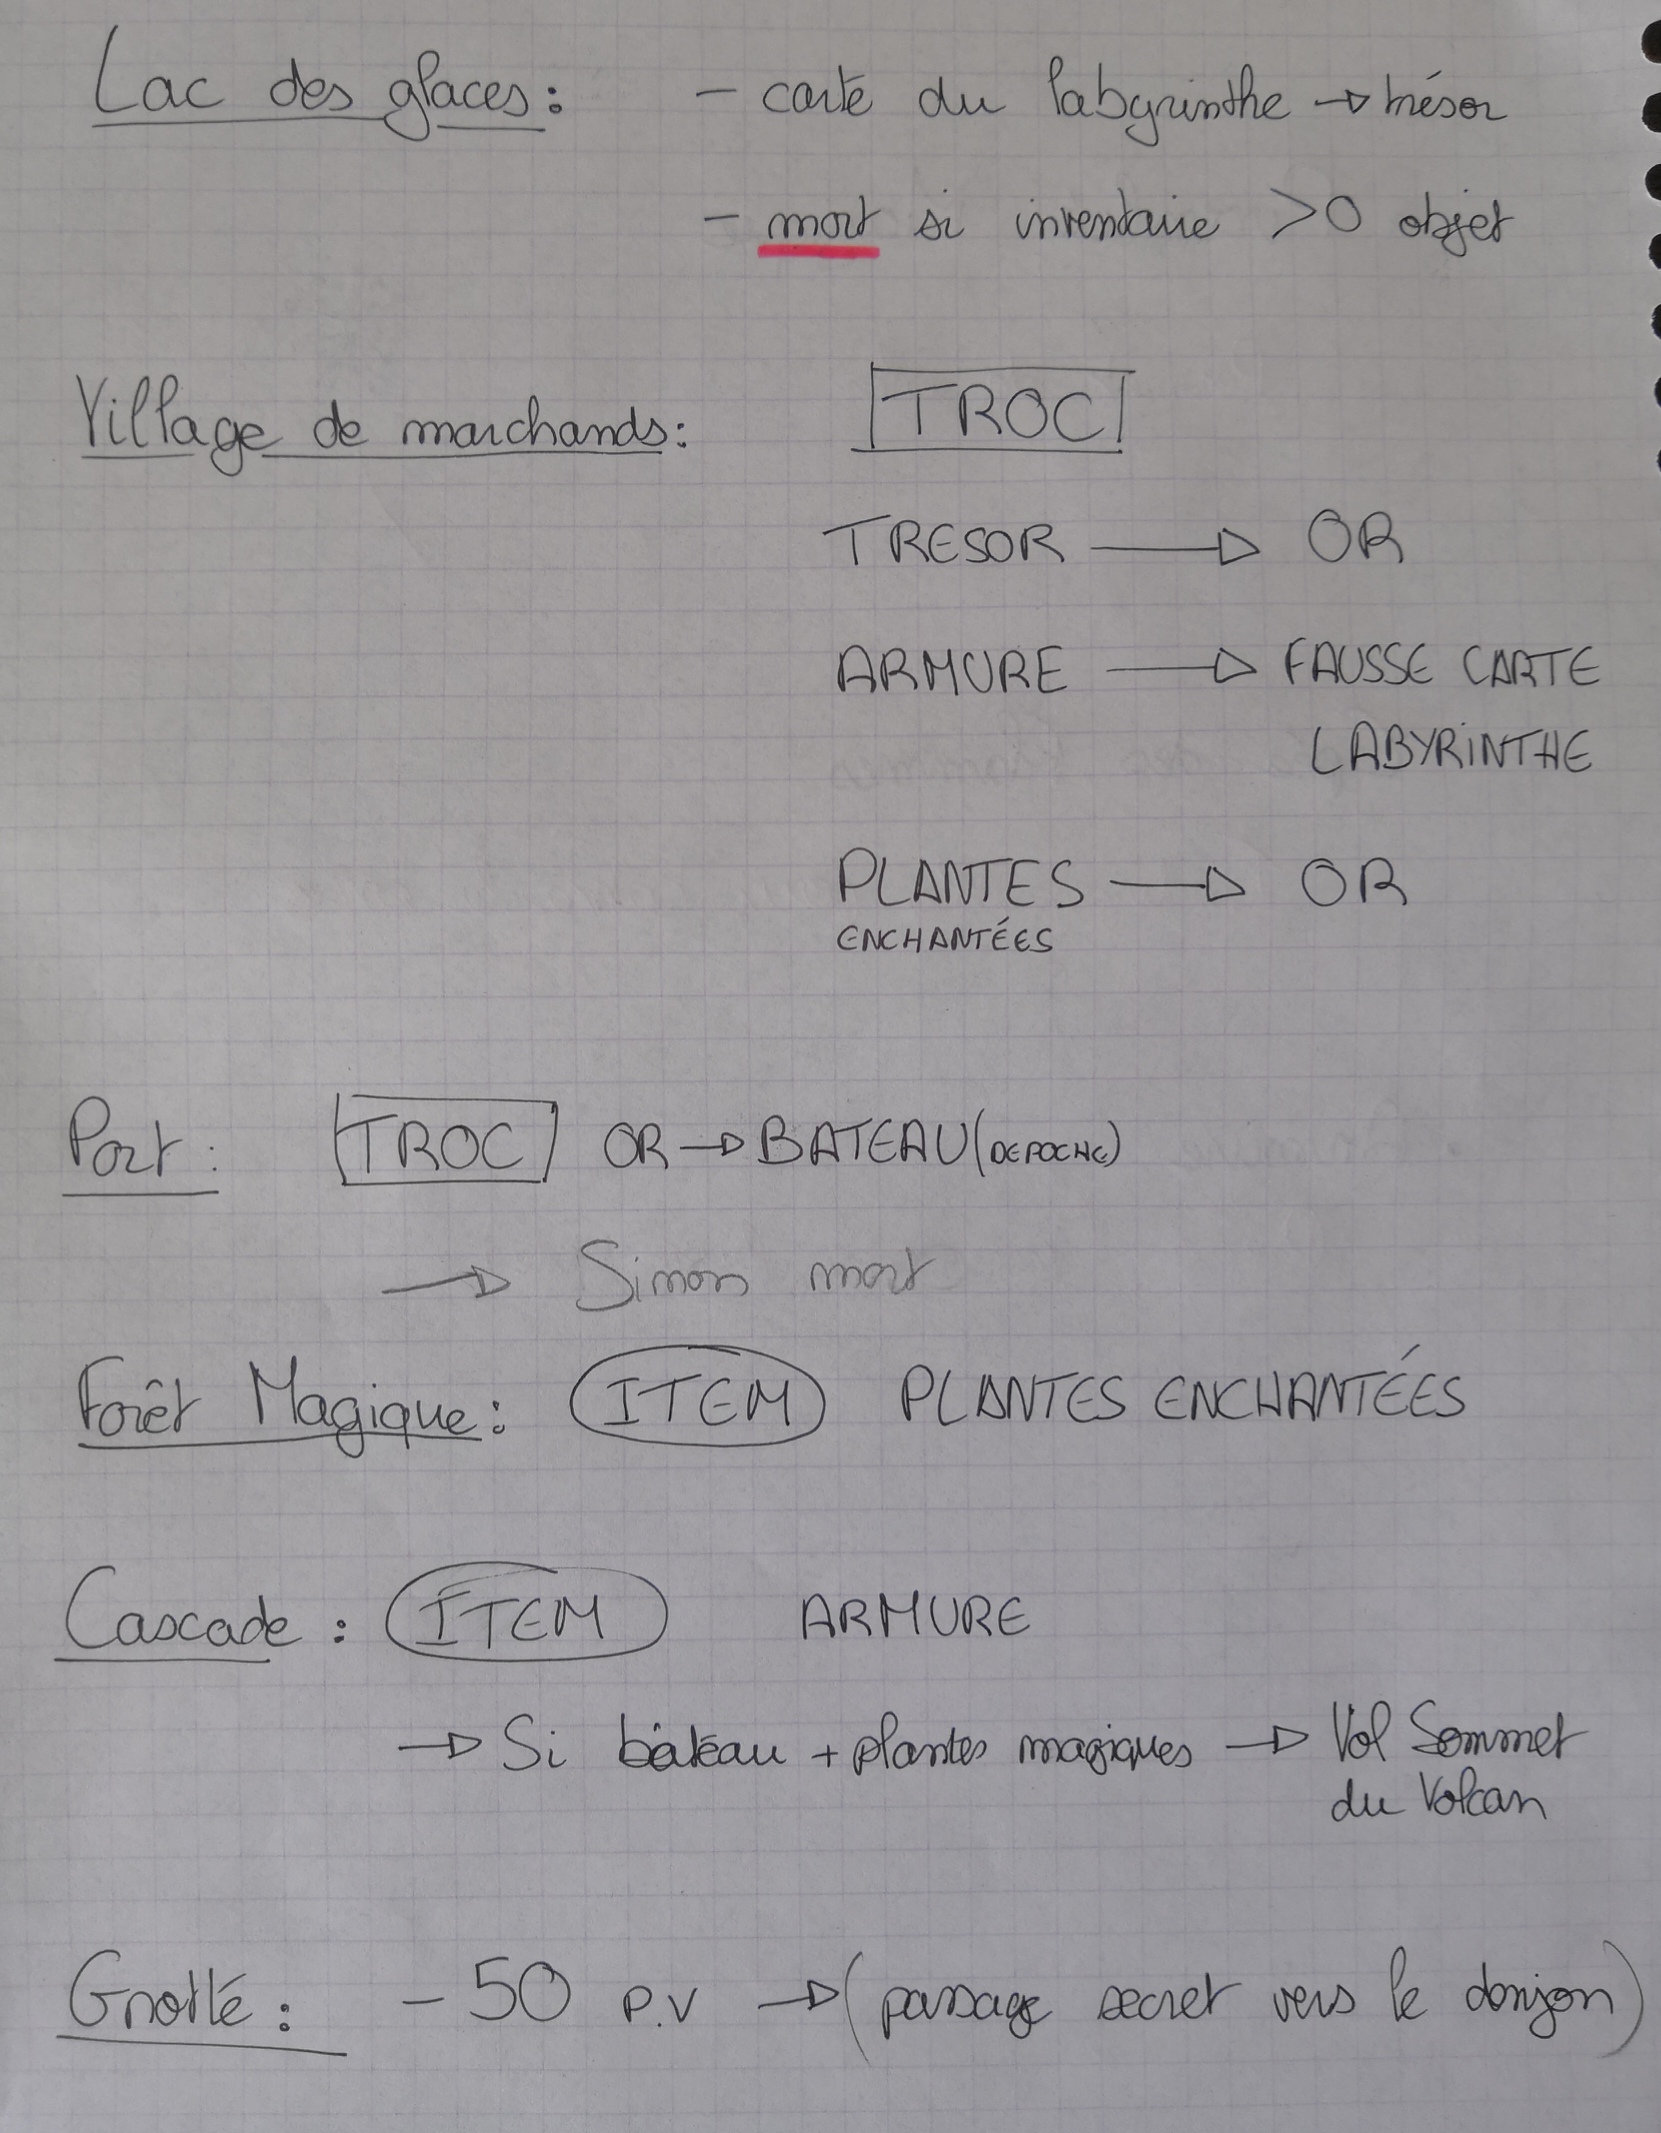 Lac des glaces : - carte du labyrinthe → trésor
- mort si inventaire >0 objet
Village de marchands : TROC
TRESOR → OR
ARMURE → FAUSSE CARTE
LABYRINTHE
PLANTES → OR
ENCHANTÉES
Port : TROC OR → BATEAU (DE POCHE)
→ Sinon mort
Forêt Magique : ITEM PLANTES ENCHANTÉES
Cascade : ITEM ARMURE
→ Si bâteau + plantes magiques → Vol Sommet
du Volcan
Grotte : - 50 P.V → (passage secret vers le donjon)